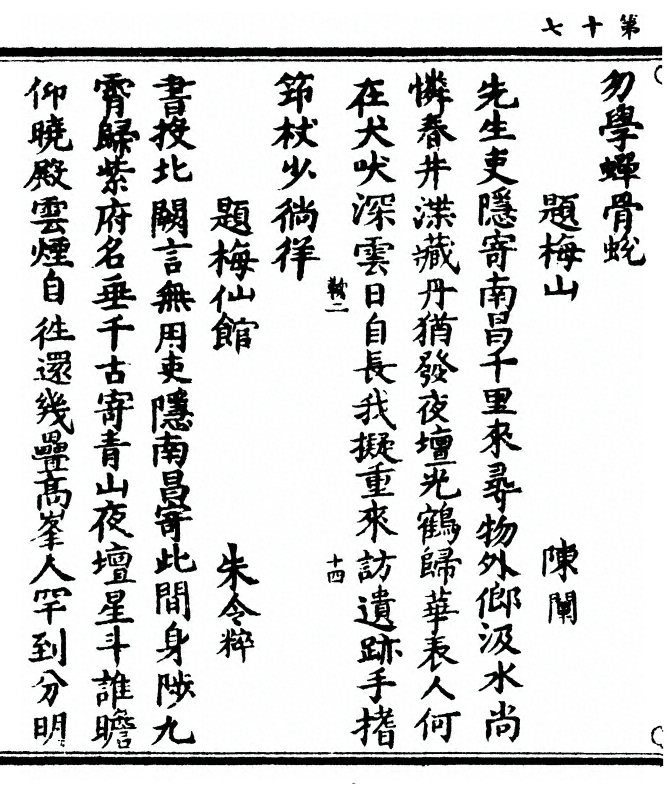 第十七
勿學蟬骨蛻
題梅山 陳闡
先生吏隱寄南昌千里來尋物外鄉汲水尚
憐春井渫藏丹猶發夜壇光鶴歸華表人何
在犬吠深雲日自長我擬重來訪遺跡手搘
二 十四
筇杖少徜徉
題梅仙館 朱令粹
書投北闕言無用吏隱南昌寄此間身陟九
霄歸紫府名垂千古寄青山夜壇星斗誰瞻
仰曉殿雲煙自徃還幾疊高峯人罕到分明